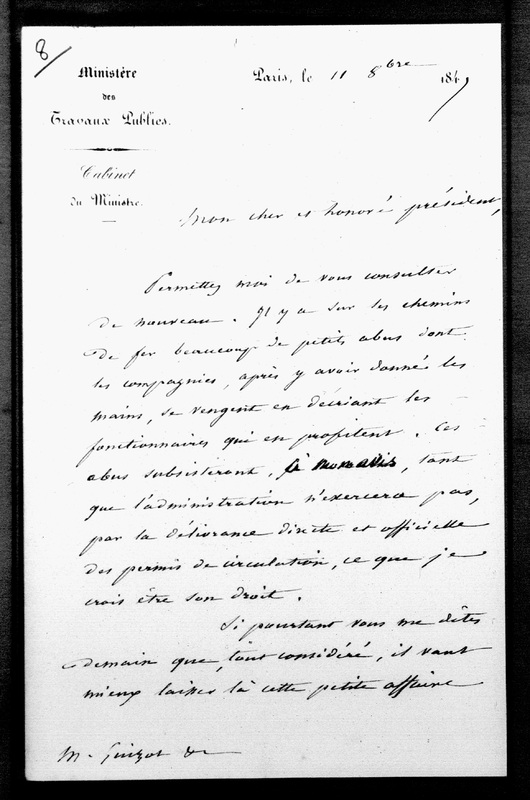 8/
Ministère
des
Travaux Publics.
Cabinet
du Ministre.
Paris, le 11 8bre 1847
Mon cher et honoré président,
Permettez moi de vous consulter
de nouveau. Il y a sur les chemins
de fer beaucoup de petits abus dont
les compagnies, après y avoir donné les
mains, se vengent en décriant les
fonctionnaires qui en profitent. Ces
abus subsisteront, à mon avis, tant
que l'administration n'exercera pas,
par la délivrance directe et officielle
des permis de circulation, ce que je
crois être son droit.
Si pourtant vous me dîtes
demain que, tout considéré, il vaut
mieux laisser là cette petite affaire
M. Guizot &c